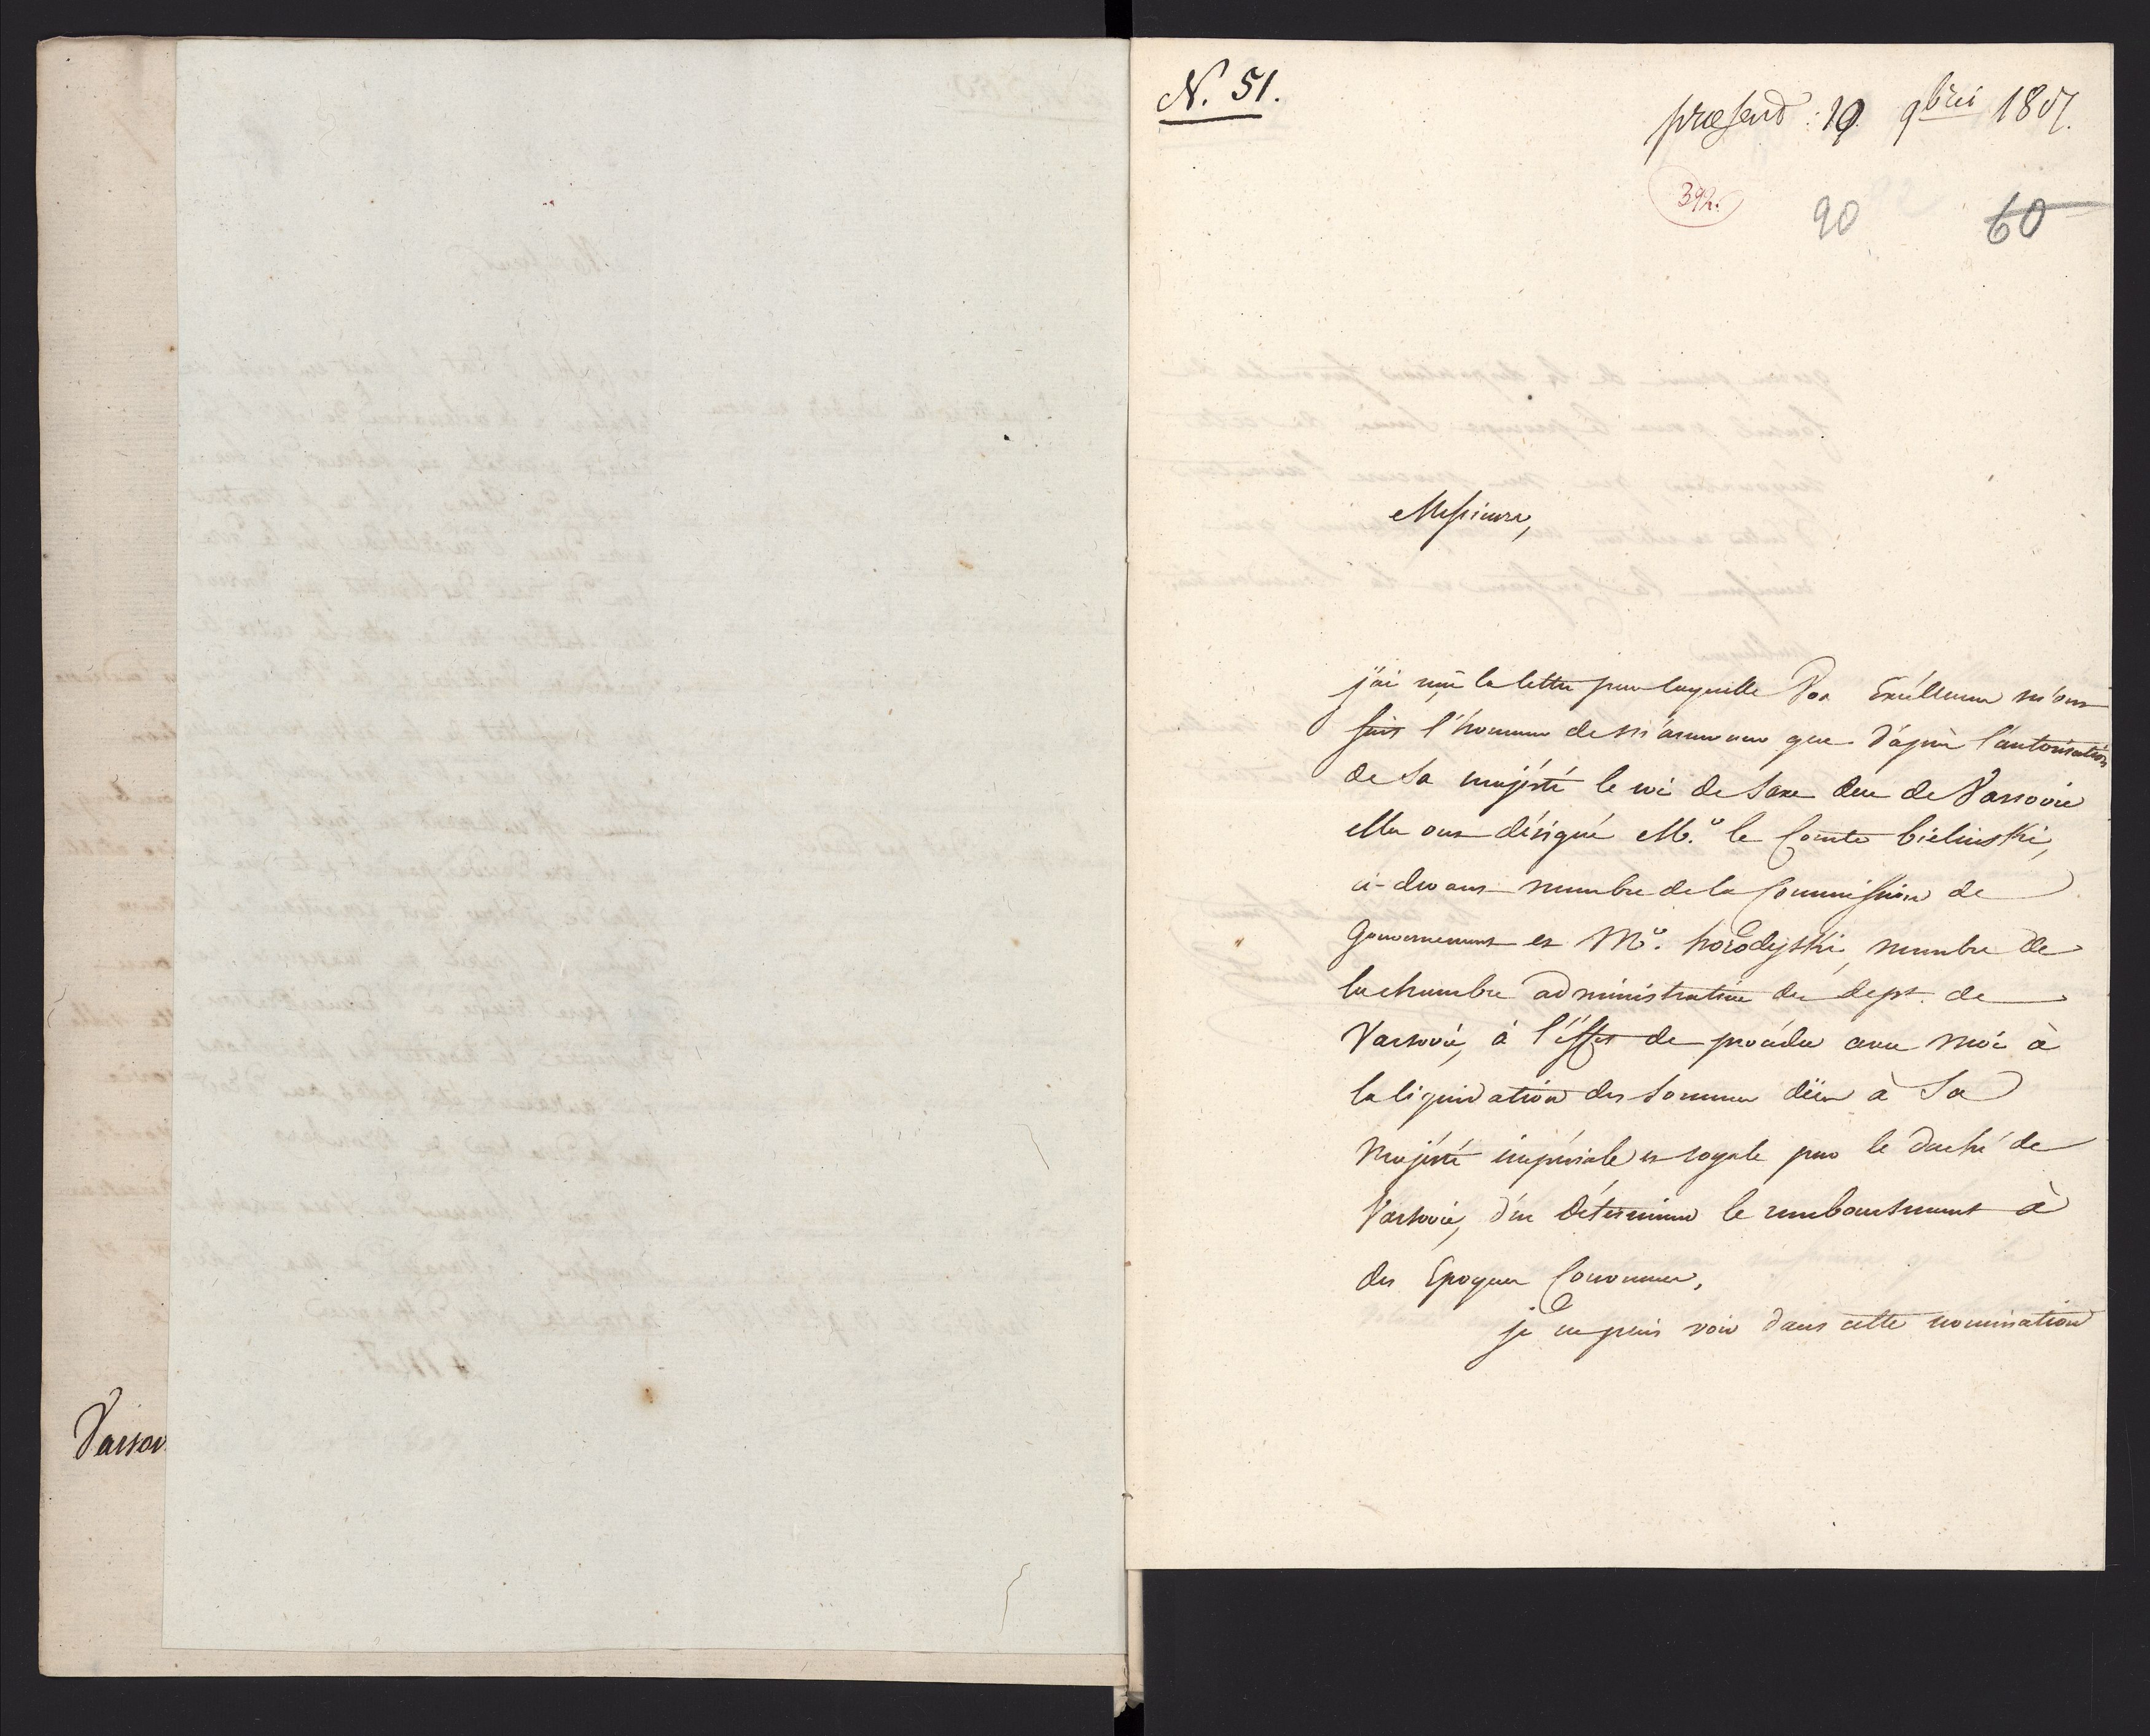 N. 51.
præsent: 19 9bris 1807.
392.
90 60
Messieurs,
j'ai reçu la lettre par laquelle Vos Excellences m'ont
fait l'honneur de m'annoncer que d'après l'autorisation
de Sa majésté le roi de Saxe duc de Varsovie
elles ont désigné Mr. le Comte bielinski,
ci-devant membre de la Commission de
Gouvernement et Mr. horodyski, membre de
la chambre administrative du dept. de
Varsovie, à l'éffet de procéder avec moi à
la liquidation des sommes dües à Sa
Majésté impériale et royale par le duché de
Varsovie, d'en déterminer le remboursement à
des Epoques Convenues,
je ne puis voir dans cette nomination
Varsov